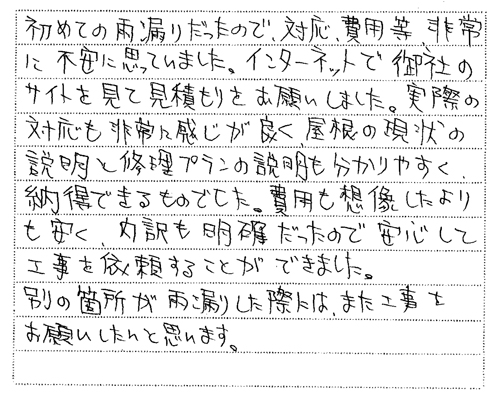 初めての雨漏りだったので、対応、費用等、非常
に不安に思っていました。インターネットで御社の
サイトを見て見積もりをお願いしました。実際の
対応も非常に感じが良く、屋根の現状の
説明と修理プランの説明も分かりやすく、
納得できるものでした。費用も想像したより
も安く、内訳も明確だったので安心して
工事を依頼することができました。
別の箇所が雨漏りした際には、また工事を
お願いしたいと思います。